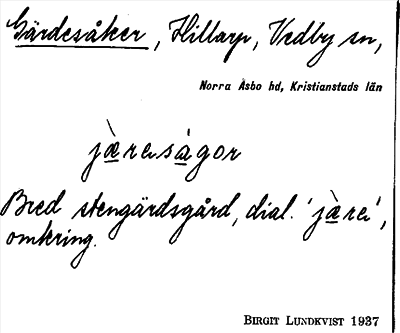 Gärdesåker, Hillarp, Vedby sn,
Norra Åsbo hd, Kristianstads län
jæ̀resågor
Bred stengärdsgård, dial. 'jæ̀re',
omkring.
BIRGIT LUNDKVIST 1937